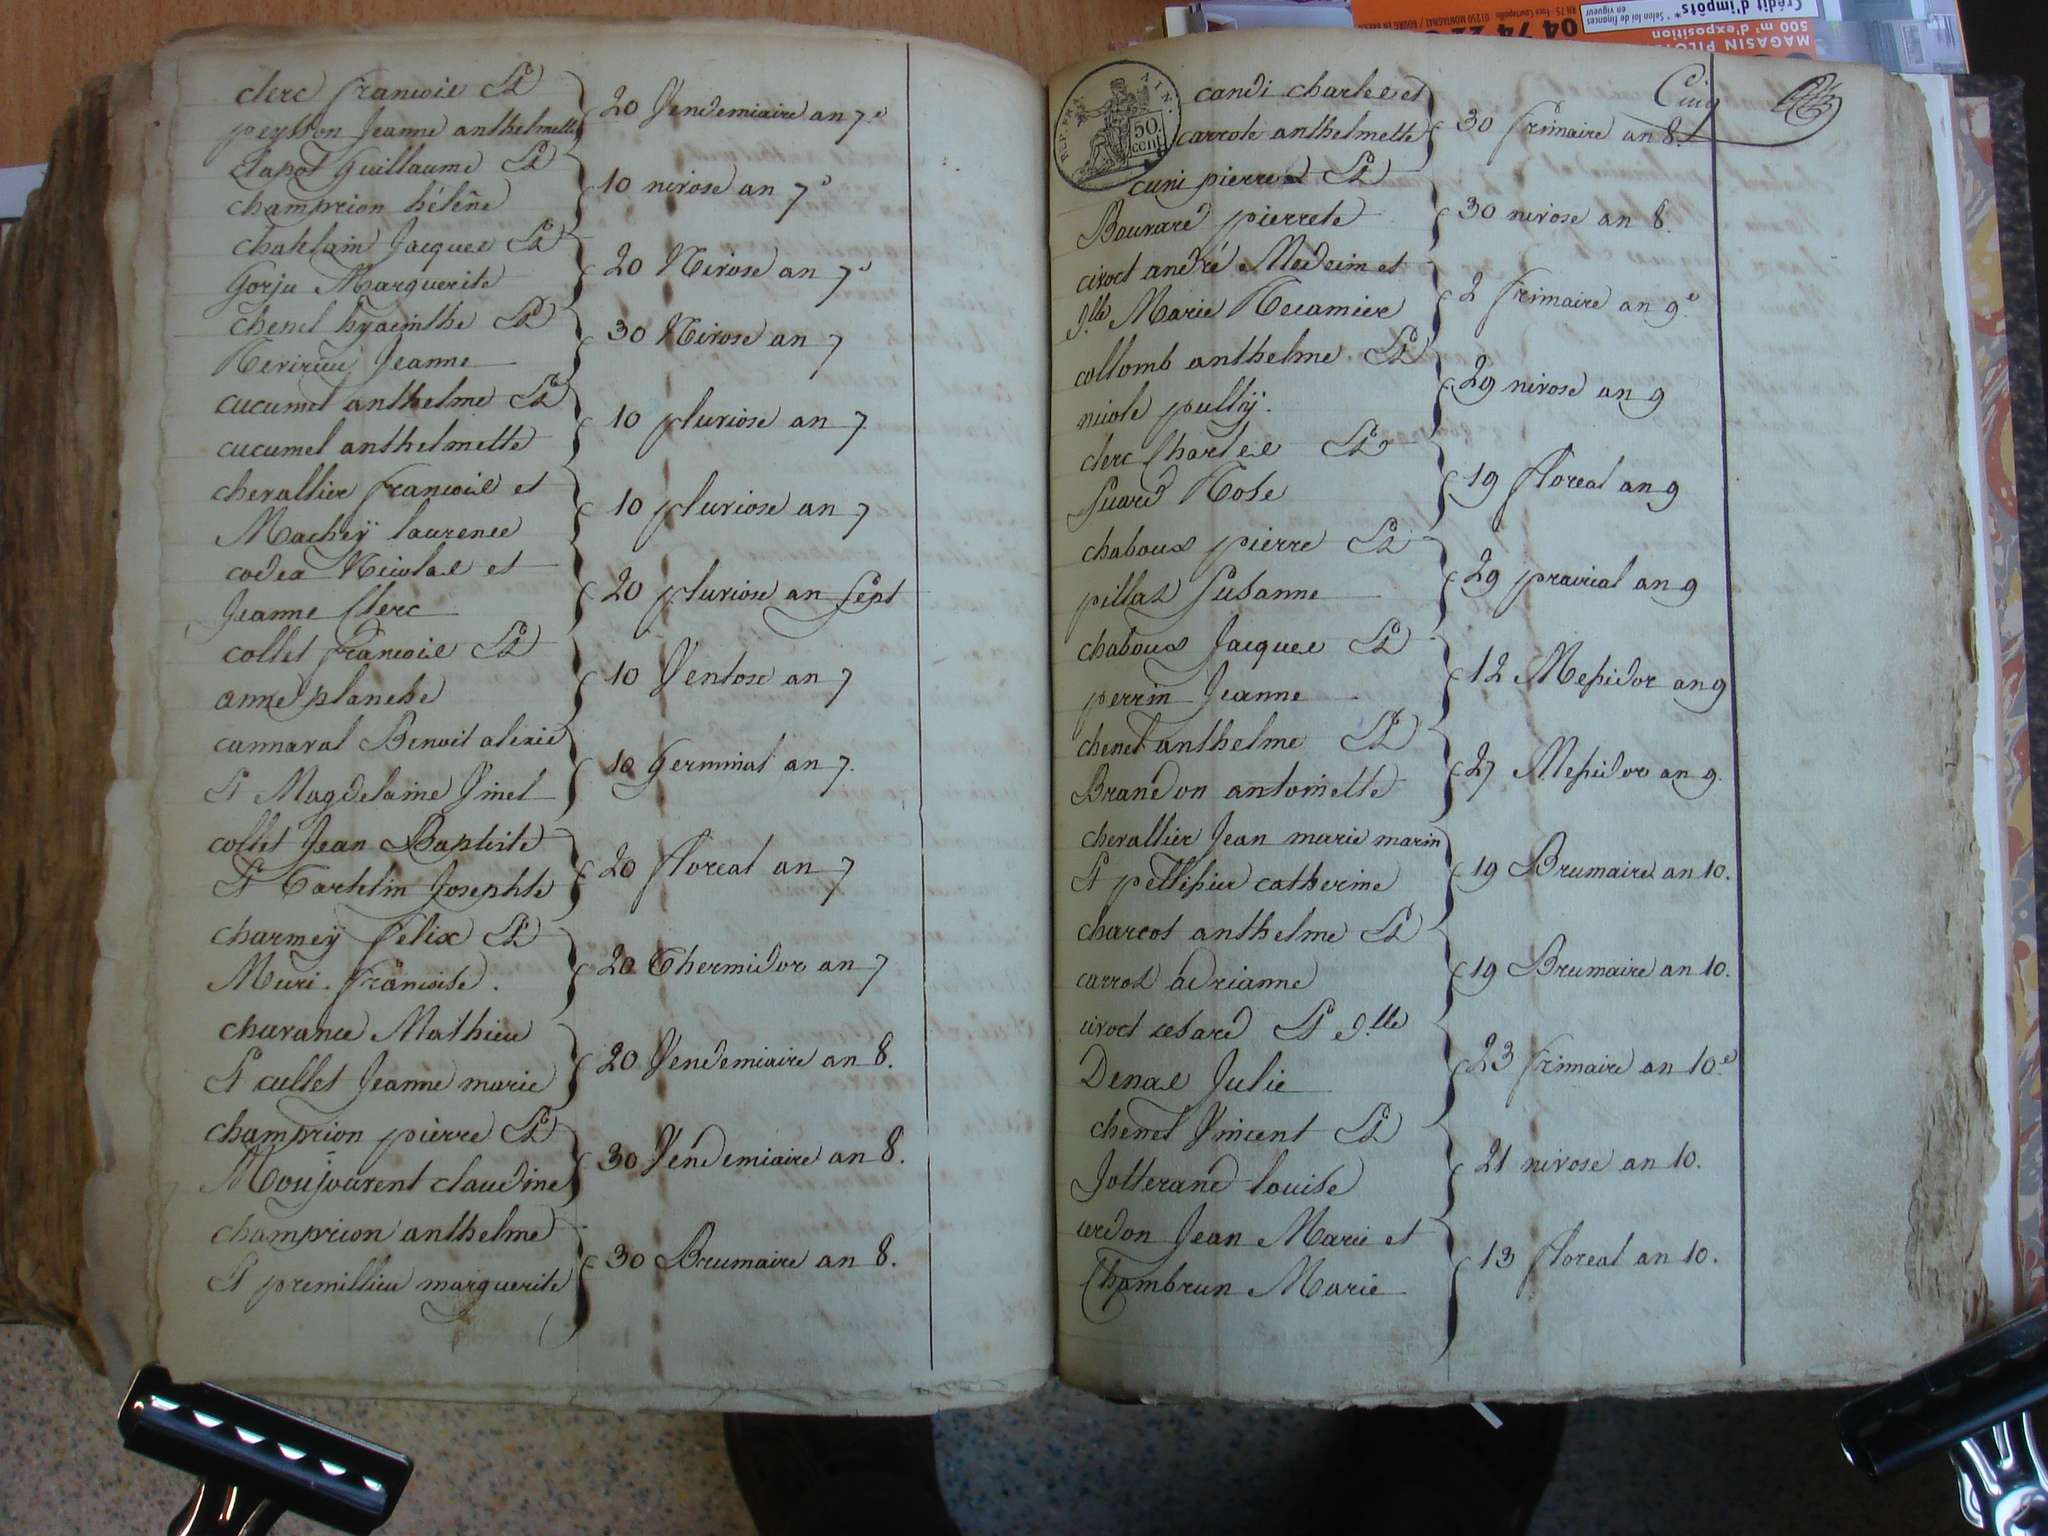 clerc francois &
peysson Jeanne anthelmette
20 Vendemiaire an 7e
clapot Guillaume &
champrion hélène
10 nivose an 7e
chatelain Jacques &
Gorju Marguerite
20 Nivose an 7e
chenel hyacinthe &
Jeanne
30 Nivose an 7
cucumel anthelme &
cucumel anthelmette
10 pluviose an 7
chevallier francois et
Machey laurence
10 pluviose an 7
codex Nicolas et
Jeanne Clerc
20 pluviose an Sept
collet francois &
anne planche
10 Ventose an 7
cannaval Benoit alexis
& Magdelaine Vinet
10 Germinal an 7.
collet Jean Baptiste
& Tartelin Josephte
20 floreal an 7
charmey felix &
Muri francoise.
20 Thermidor an 7
charance Mathieu
& cullet Jeanne marie
20 Vendemiaire an 8.
champrion pierre &
Moujourent claudine
30 Vendemiaire an 8.
champrion anthelme
& premillieu marguerite
30 Brumaire an 8.
Cinq
REP. FRA.
AIN.
50.
cent
candi charles et
carrote anthelmette
30 frimaire an 8.
cuni pierre &
Bouvard pierrete
30 nivose an 8.
civoct andré Medecin et
dlle Marie Recamier
2 frimaire an 9e
collomb anthelme &
nicole pulliy.
29 nivose an 9
clerc Charles &
Suard Rose
19 floreal an 9
chaboux pierre &
pillaz Susanne
29 prairial an 9
chaboux Jacques &
perrin Jeanne
12 Messidor an 9
chenel anthelme &
Brandon antoinette
27 Messidor an 9.
chevallier Jean marie marin
& pellissier catherine
19 Brumaire an 10.
charcot anthelme &
carroz adrianne
19 Brumaire an 10.
civoct cesard & dlle
Denas Julie
23 frimaire an 10e
chenel Vincent &
Jotterand louise
21 nivose an 10.
cerdon Jean Marie et
Chambrun Marie
13 floreal an 10.
Crédit d'impôts*
* Selon loi de finances
en vigueur
MAGASIN
500 m² d'exposition
04 74